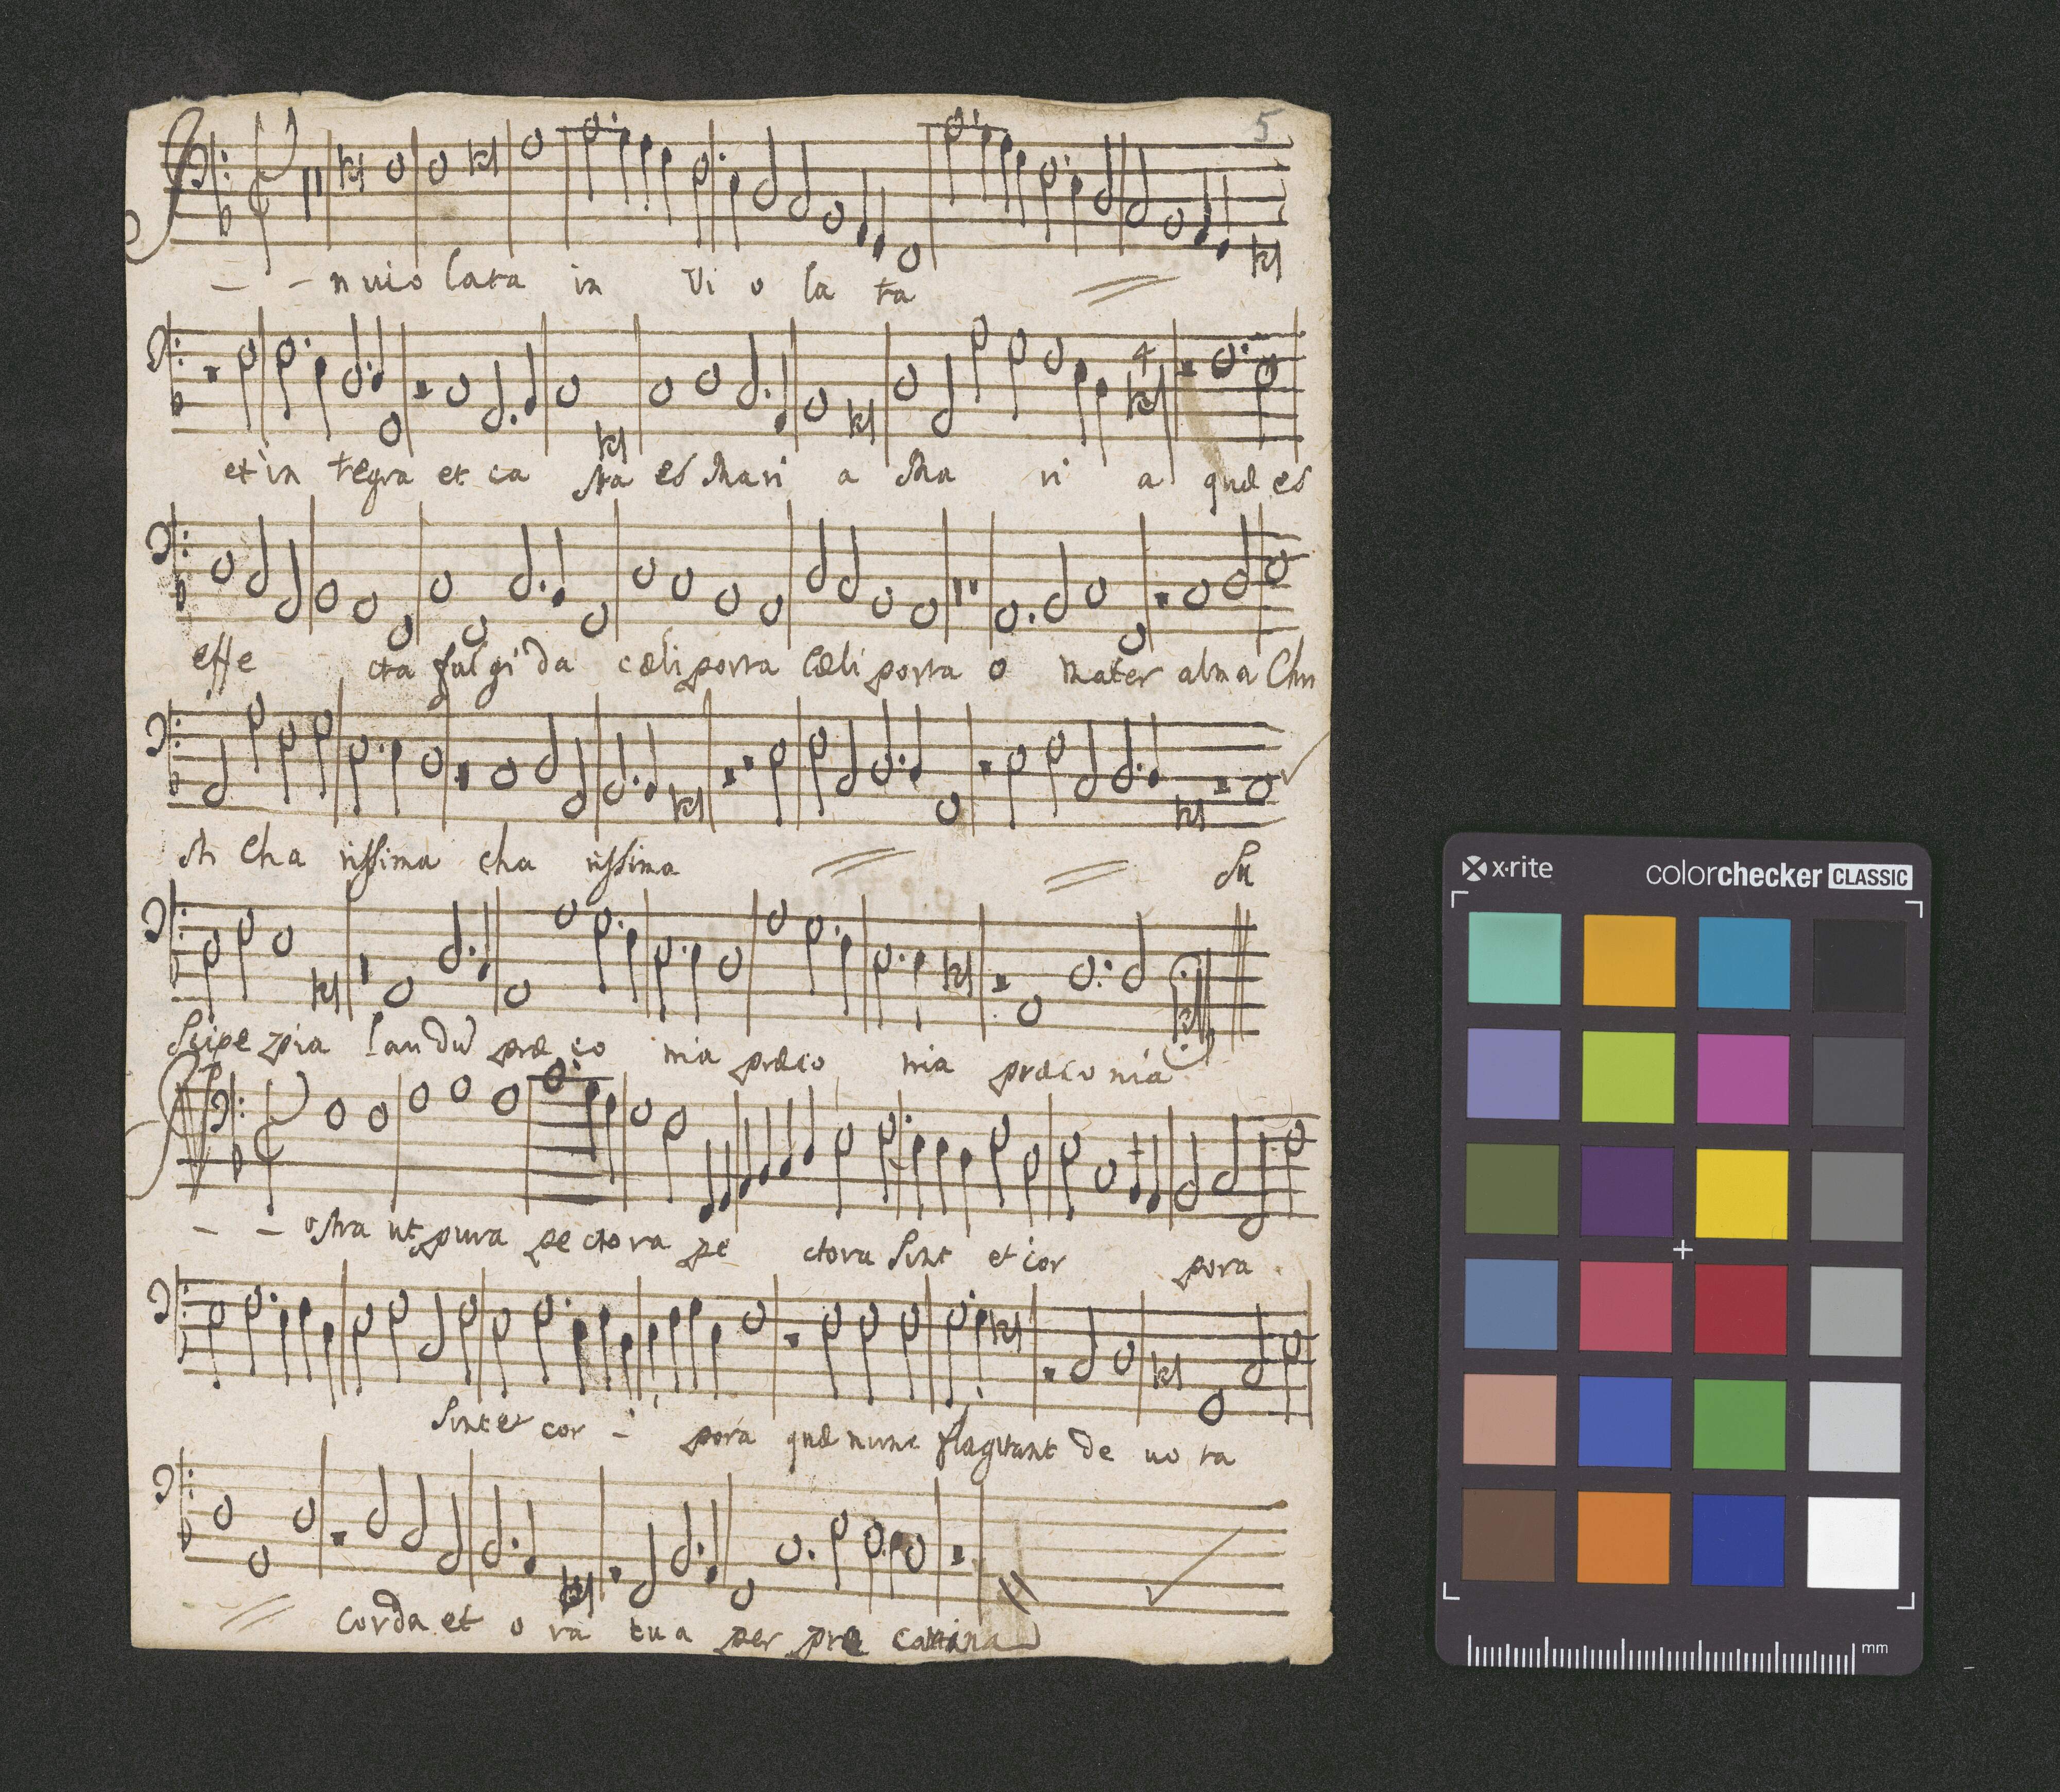 5
- - nuio lata in Vi o la ta
4
et in tegra et ca sta es Mari a Ma ri a quæ es
effe cta fulgi da cœli porta Cœli porta o Mater alma Chri
sti Cha rissima cha rissima Su
scipe pia laudu præ co nia præco nia præco nia
- - ostra ut pura pe ctora pe ctora sint et cor pora
sint et cor - pora quæ nunc flagitant de uo ta
Corda et o ra tua per pre
x·rite
colorchecker CLASSIC
mm